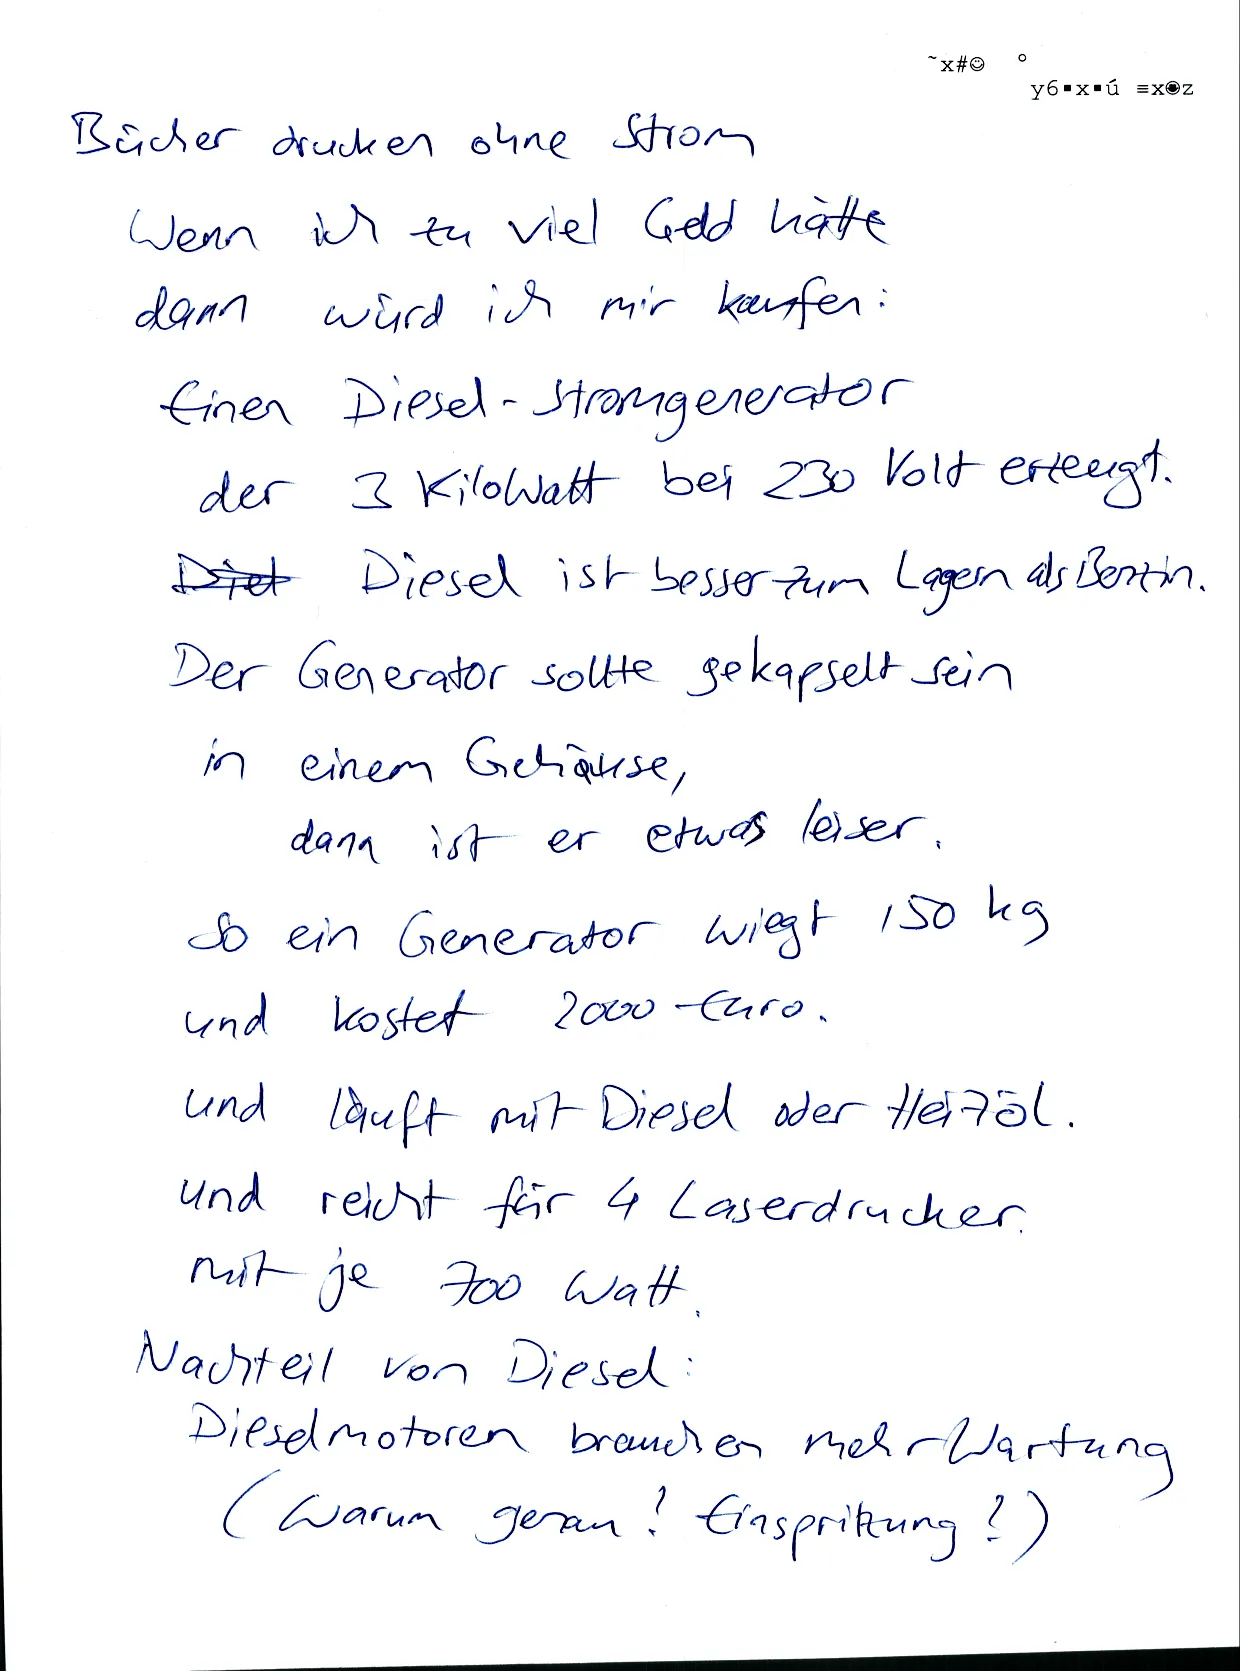 ˜x#☺ °
y6▪x▪ú ≡x◉z
Bücher drucken ohne Strom
Wenn ich zu viel Geld hätte
dann würd ich mir kaufen:
Einen Diesel-Stromgenerator
der 3 KiloWatt bei 230 Volt erzeugt.
Diet Diesel ist besser zum Lagern als Benzin.
Der Generator sollte gekapselt sein
in einem Gehäuse,
dann ist er etwas leiser.
So ein Generator wiegt 150 kg
und kostet 2000 Euro.
und läuft mit Diesel oder Heizöl.
und reicht für 4 Laserdrucker.
mit je 700 Watt.
Nachteil von Diesel:
Dieselmotoren brauchen mehr Wartung
(Warum genau? Einspritzung?)